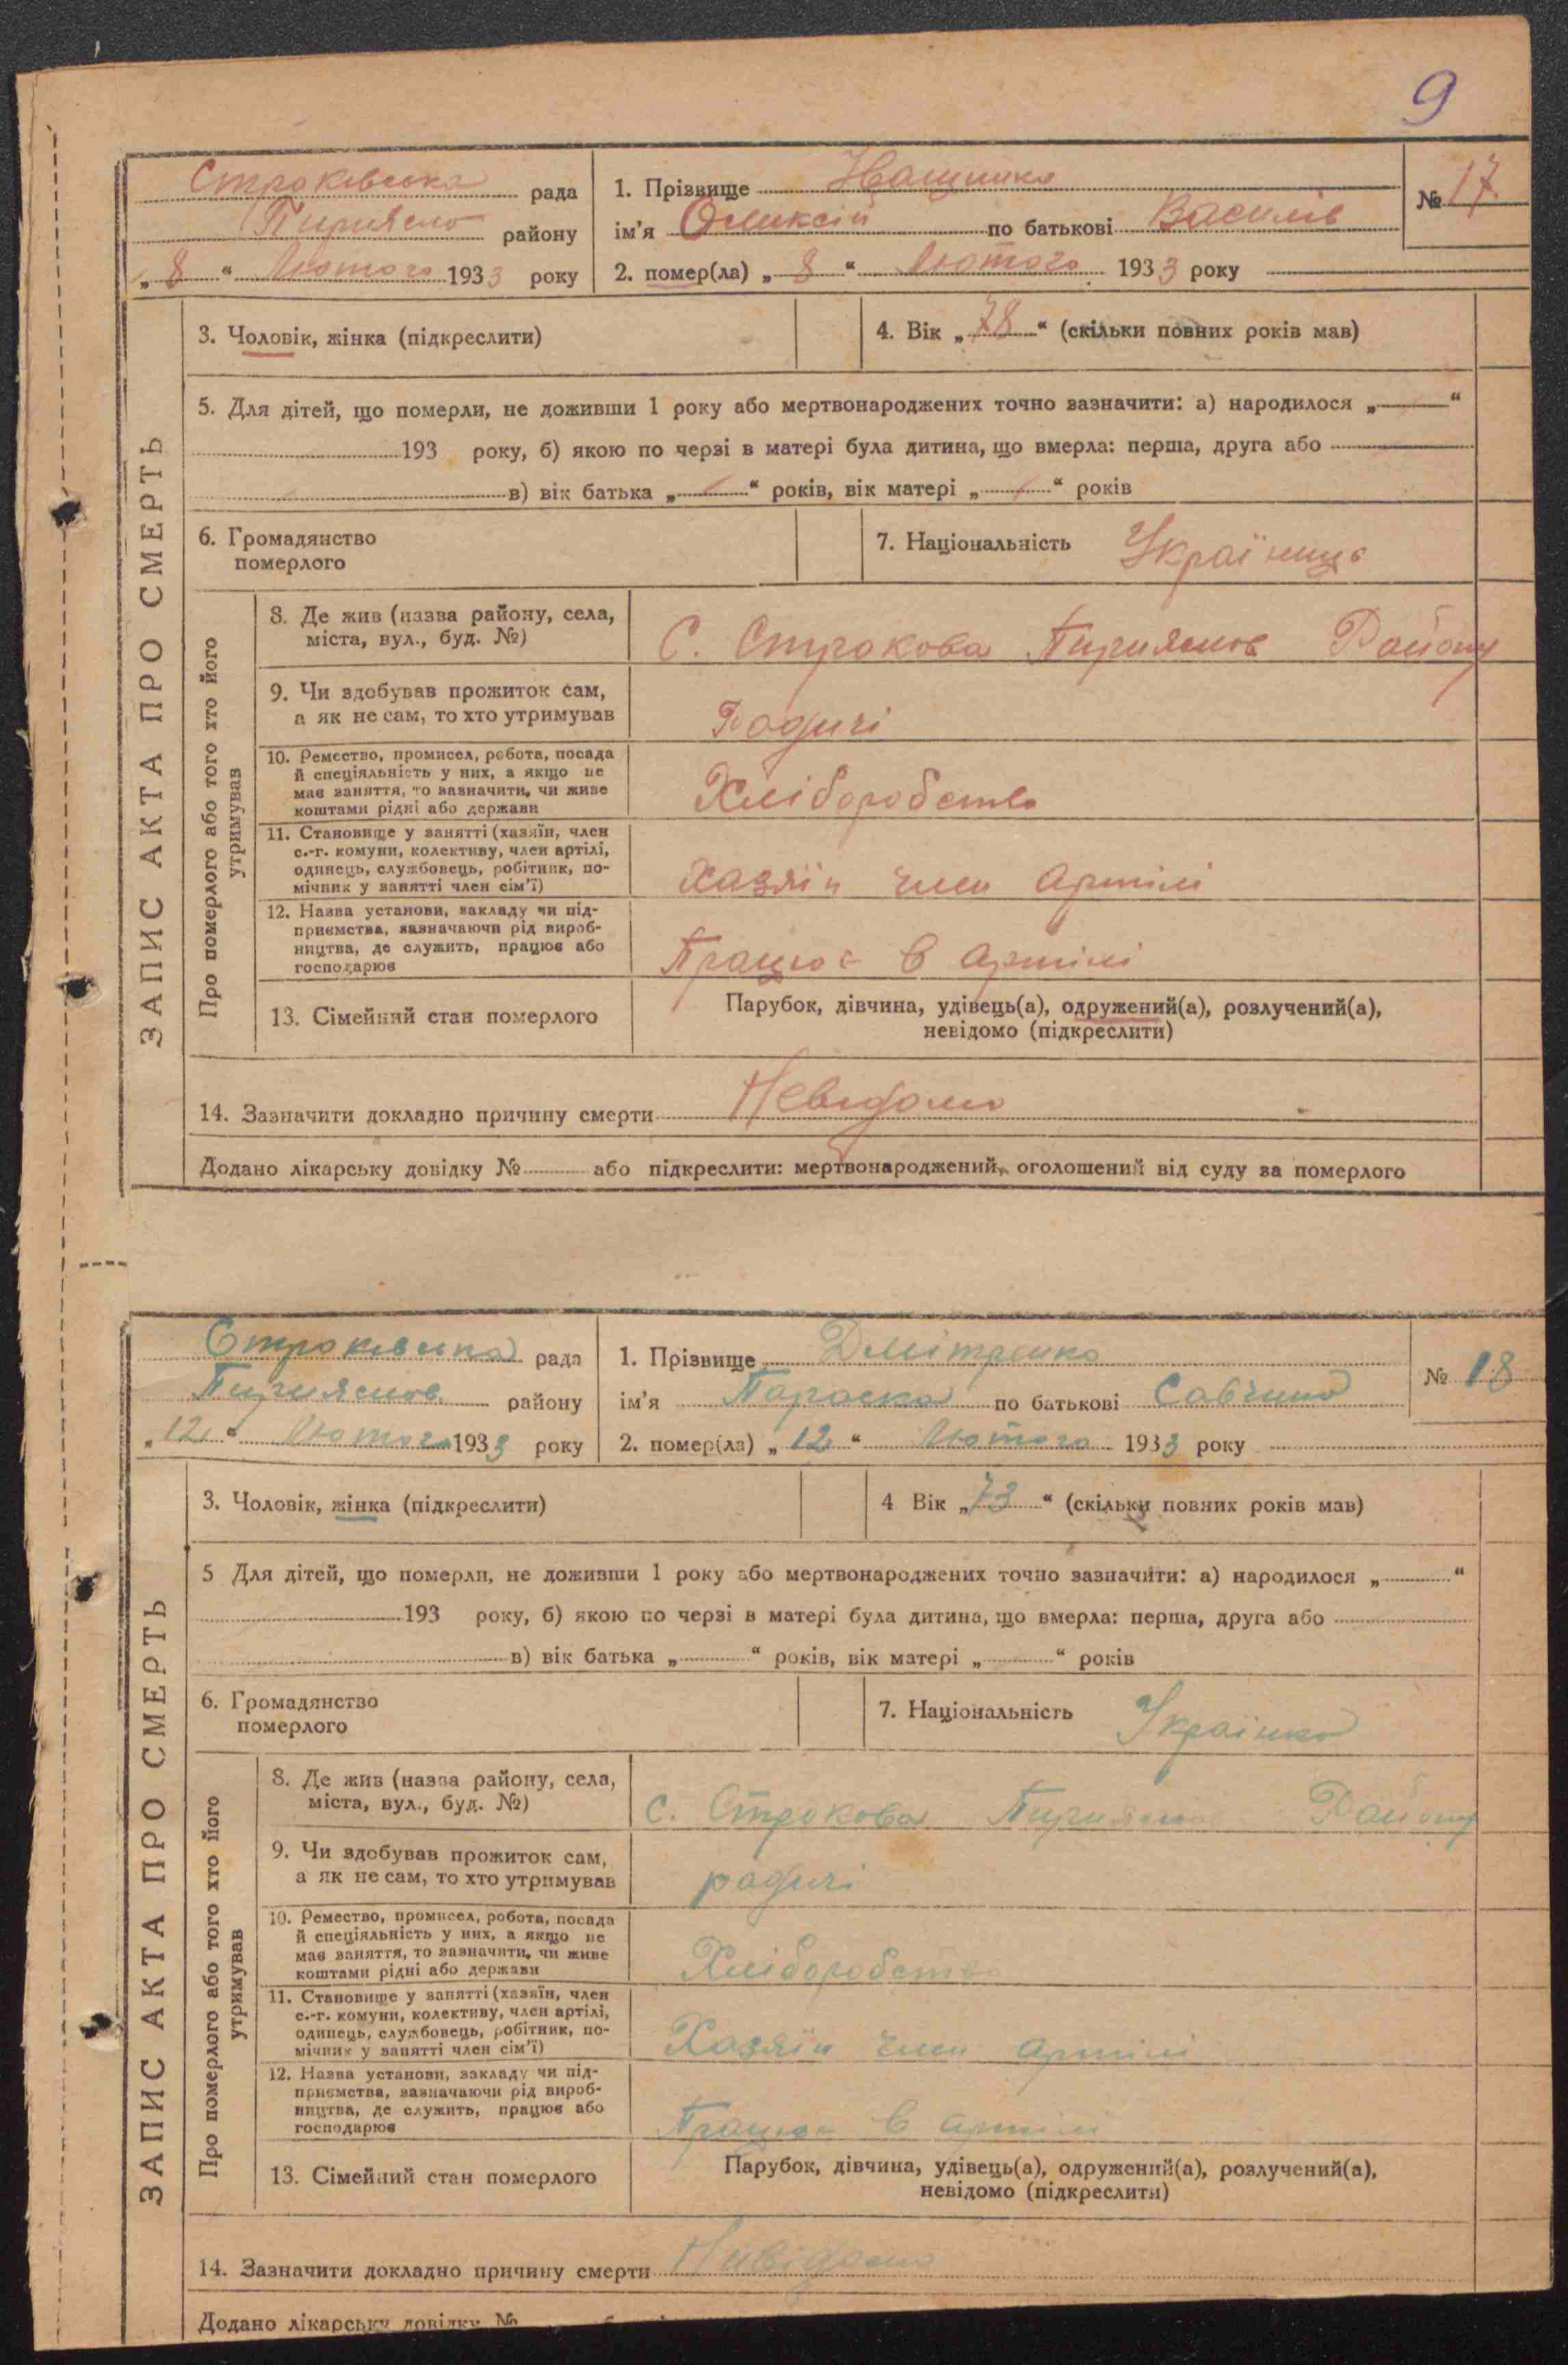 9
Строківська рада
району
„ 8 “ Лютого 1933 року
1. Прізвище
ім'я Оликсій по батькові Василів
2. помер(ла) „ 8 “ Лютого 1933 року
№ 17.
ЗАПИС АКТА ПРО СМЕРТЬ
3. Чоловік, жінка (підкреслити)
4. Вік „ 78 “ (скільки повних років мав)
5. Для дітей, що померли, не доживши 1 року або мертвонароджених точно зазначити: а) народилося „ “
193 року, б) якою по черзі в матері була дитина, що вмерла: перша, друга або
в) вік батька „ “ років, вік матері „ “ років
6. Громадянство
померлого
7. Національність Україниць
Про померлого або того хто його
утримував
8. Де жив (назва району, села,
міста, вул., буд. №)
С. Строкова Району
9. Чи здобував прожиток сам,
а як не сам, то хто утримував
Родичі
10. Ремество, промисел, робота, посада
й спеціяльність у них, а якщо не
має заняття, то зазначити, чи живе
коштами рідні або держави
Хліборобство
11. Становище у занятті (хазяїн, член
с.-г. комуни, колективу, член артілі,
одинець, службовець, робітник, по-
мічник у занятті член сім'ї)
Хазяїн член артілі
12. Назва установи, закладу чи під-
приємства, зазначаючи рід вироб-
ництва, де служить, працює або
господарює
Працює в артілі
13. Сімейний стан померлого
Парубок, дівчина, удівець(а), одружений(а), розлучений(а),
невідомо (підкреслити)
14. Зазначити докладно причину смерти Невідомо
Додано лікарську довідку № або підкреслити: мертвонароджений, оголошений від суду за померлого
Строківська рада
району
„ 12 “ Лютого 1933 року
1. Прізвище Дмітренко
ім'я Параска по батькові Савчина
2. помер(ла) „ 12 “ Лютого 1933 року
№ 18
ЗАПИС АКТА ПРО СМЕРТЬ
3. Чоловік, жінка (підкреслити)
4 Вік „ 73 “ (скільки повних років мав)
5 Для дітей, що померли, не доживши 1 року або мертвонароджених точно зазначити: а) народилося „ “
193 року, б) якою по черзі в матері була дитина, що вмерла: перша, друга або
в) вік батька „ “ років, вік матері „ “ років
6. Громадянство
померлого
7. Національність Українка
Про померлого або того хто його
утримував
8. Де жив (назва району, села,
міста, вул., буд. №)
с. Строкова Району
9. Чи здобував прожиток сам,
а як не сам, то хто утримував
родичі
10. Ремество, промисел, робота, посада
й спеціяльність у них, а якщо не
має заняття, то зазначити, чи живе
коштами рідні або держави
Хліборобство
11. Становище у занятті (хазяїн, член
с.-г. комуни, колективу, член артілі,
одинець, службовець, робітник, по-
мічник у занятті член сім'ї)
Хазяїн член артілі
12. Назва установи, закладу чи під-
приємства, зазначаючи рід вироб-
ництва, де служить, працює або
господарює
Працює в артілі
13. Сімейний стан померлого
Парубок, дівчина, удівець(а), одружений(а), розлучений(а),
невідомо (підкреслити)
14. Зазначити докладно причину смерти Нивідомо
Додано лікарську довідку №